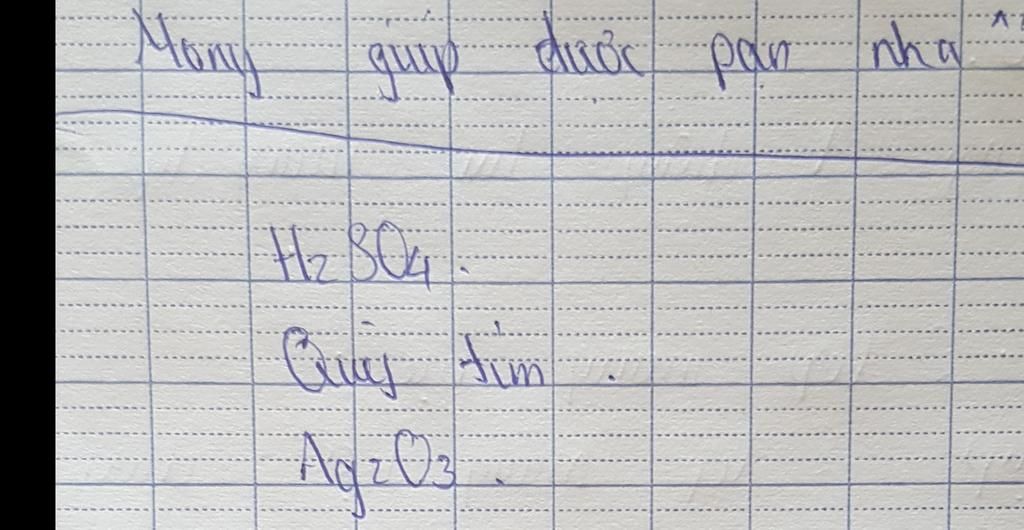 Mong giúp được pạn nha ^
H2SO4.
Quỳ tím.
Ag2O3.